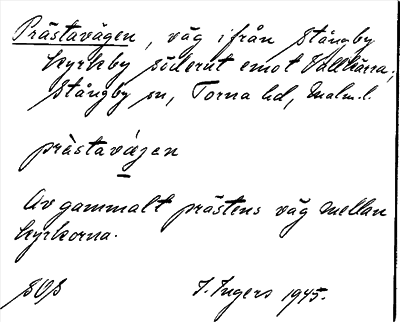 Prästavägen, väg ifrån Stångby
kyrkby söderut emot Vallkärra,
Stångby sn, Torna hd, Malm.l.
prästavä́gen
Av gammalt prästens väg mellan
kyrkorna.
SOS I. Ingers 1945.